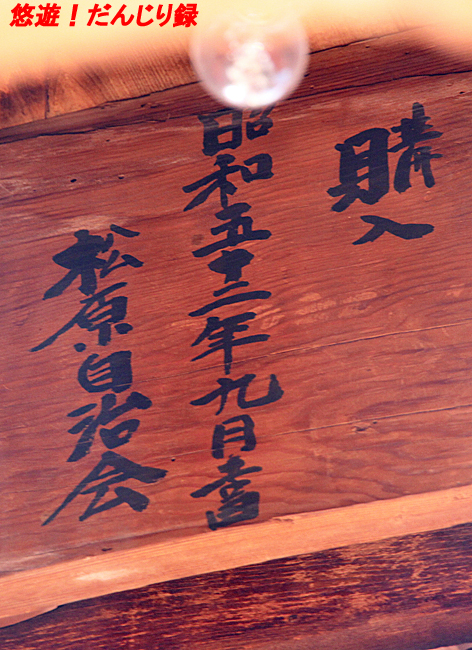 悠遊！だんじり録
購入
昭和五十二年九月吉日
松原自治会